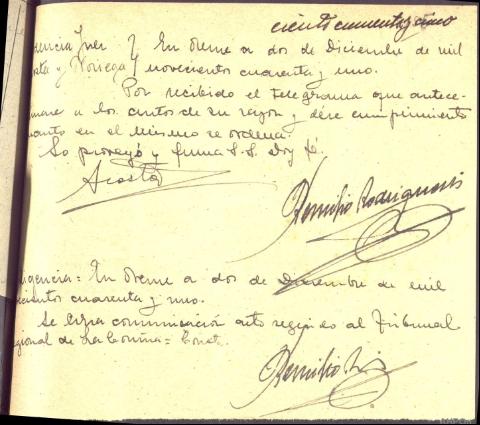 ciento cuarenta y cinco
dencia Juez } En Orense a dos de Diciembre de mil
osta y Noriega } novecientos cuarenta y uno.
Por recibido el telegrama que antece-
a los autos de su razon y dése cumplimiento
uanto en el mismo se ordena.
Lo proveyó y firma S.S. Doy fé.
Acosta
Remilio Rodriguez
igencia = En Orense a dos de Diciembre de mil
ecientos cuarenta y uno.
Se libra comunicación al Tribunal
gional de La Coruña =
Remilio